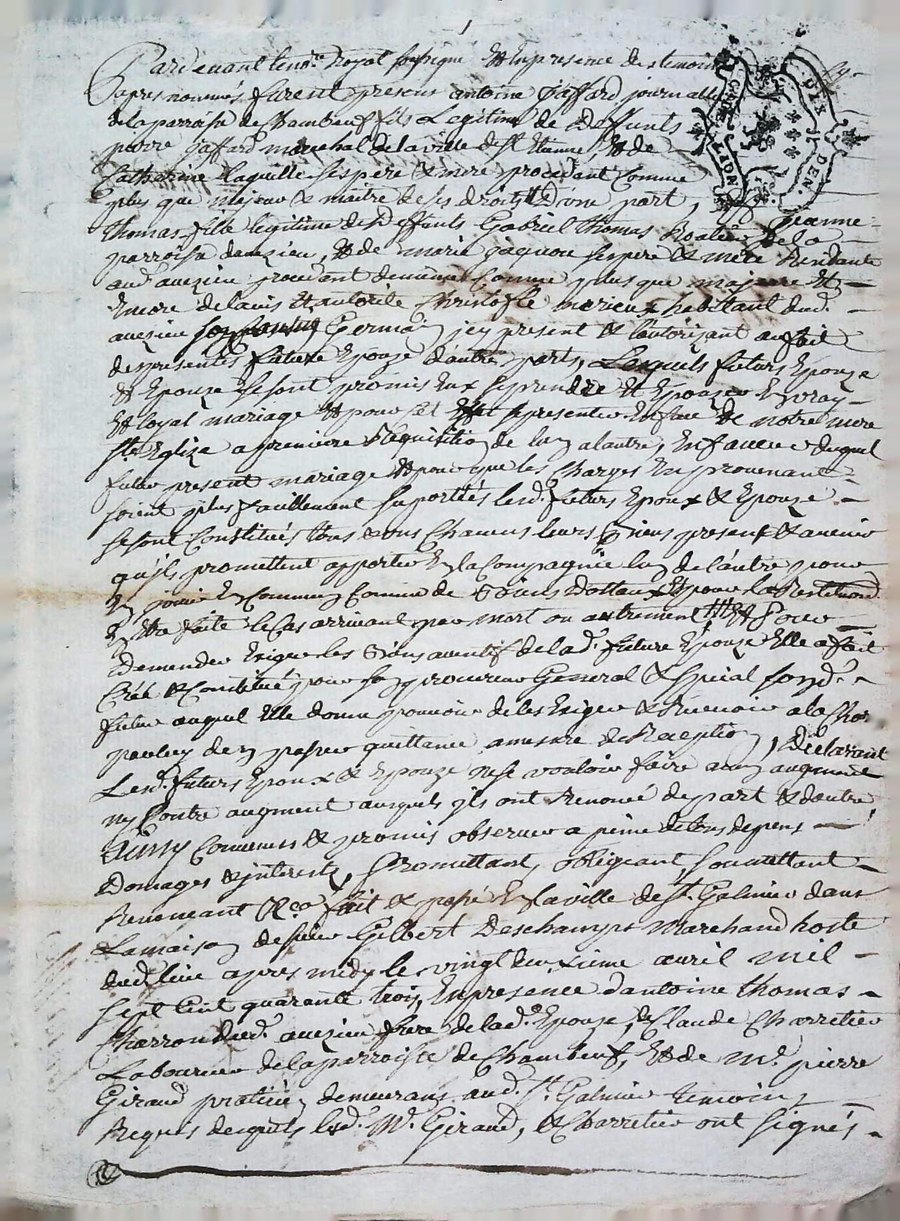 Pardevant le no.re Royal soussigné Et En presence des temoins
apres nommés furent present antoine Gaffard journallier
de la parroisse de Chambeuf fils Legitime de Deffunts
pierre Gaffard marechal de la ville de St Etienne, Et de
Catherine Laquille ses pere & mere procedant Comme
plus que majeur & maitre de ses droits d'une part, Et Jeanne
Thomas fille legitime de deffunts Gabriel Thomas de la
parroisse daveizieu, Et de marie gagnon ses pere & mere Residante
aud. aveizieu procedant de meme Comme plus que majeure Et
Encore de lavis Et autorité Christofle morieux habitant dud.
aveizieu Germain icy present & l'autorisant au fait
des presentes future Epouze d'autre part, Lesquels futurs Epoux
& Epouze se sont promis Eux se prendre Et Epouzer En vray
Et loyal mariage Et pour cet Effet se presenter En face de notre mere
Ste Eglize a premiere Requisition de lun a lautre, En faveur duquel
futur present mariage Et pour que les Charges En provenant
soient plus facillement suportées lesd. futurs Epoux & Epouze
se sont Constitués tous & uns Chacuns leurs Biens present & avenir
qu'ils promettent apporter En la Compagnie lun de lautre pour
En jouir En Commun Comme de Biens Dottaux Et pour la Restitution
En Etre faite le Cas arrivant par mort ou autrement Et Pour
Demander Exiger les Biens aventif de lad. future Epouze Elle a fait
Créé & Constitué pour son procureur General & special sond.
futur auquel Elle donne pouvoir de les Exiger & Recevoir a la Char
pour luy den passer quittance a mesure de Reception, declarant
Lesd. futurs Epoux & Epouze ne se vouloir faire aucun augment
ny Contre augment auxquels ils ont Renoncé de part & dautre
Ainsy Convenus & promis observer a peine de tous depens
Domages & interests, Promettant, obligeant, soumettant
Renonceant &ca fait & passé En la ville de St. Galmier dans
La maison de sieur Gilbert Deschamps Marchand hoste
dud. lieu apres midy le vingt deuxieme avril mil
sept Cent quarante trois En presence d'antoine Thomas
Charron dud. aveizieu frere de lad. Epouze, de Claude Charretier
Laboureur de la parroisse de Chambeuf, Et de Me. pierre
Giraud praticien demeurans aud. St. Galmier temoins
Requis desquels lesd. Me. Giraud, & Charretier ont signés